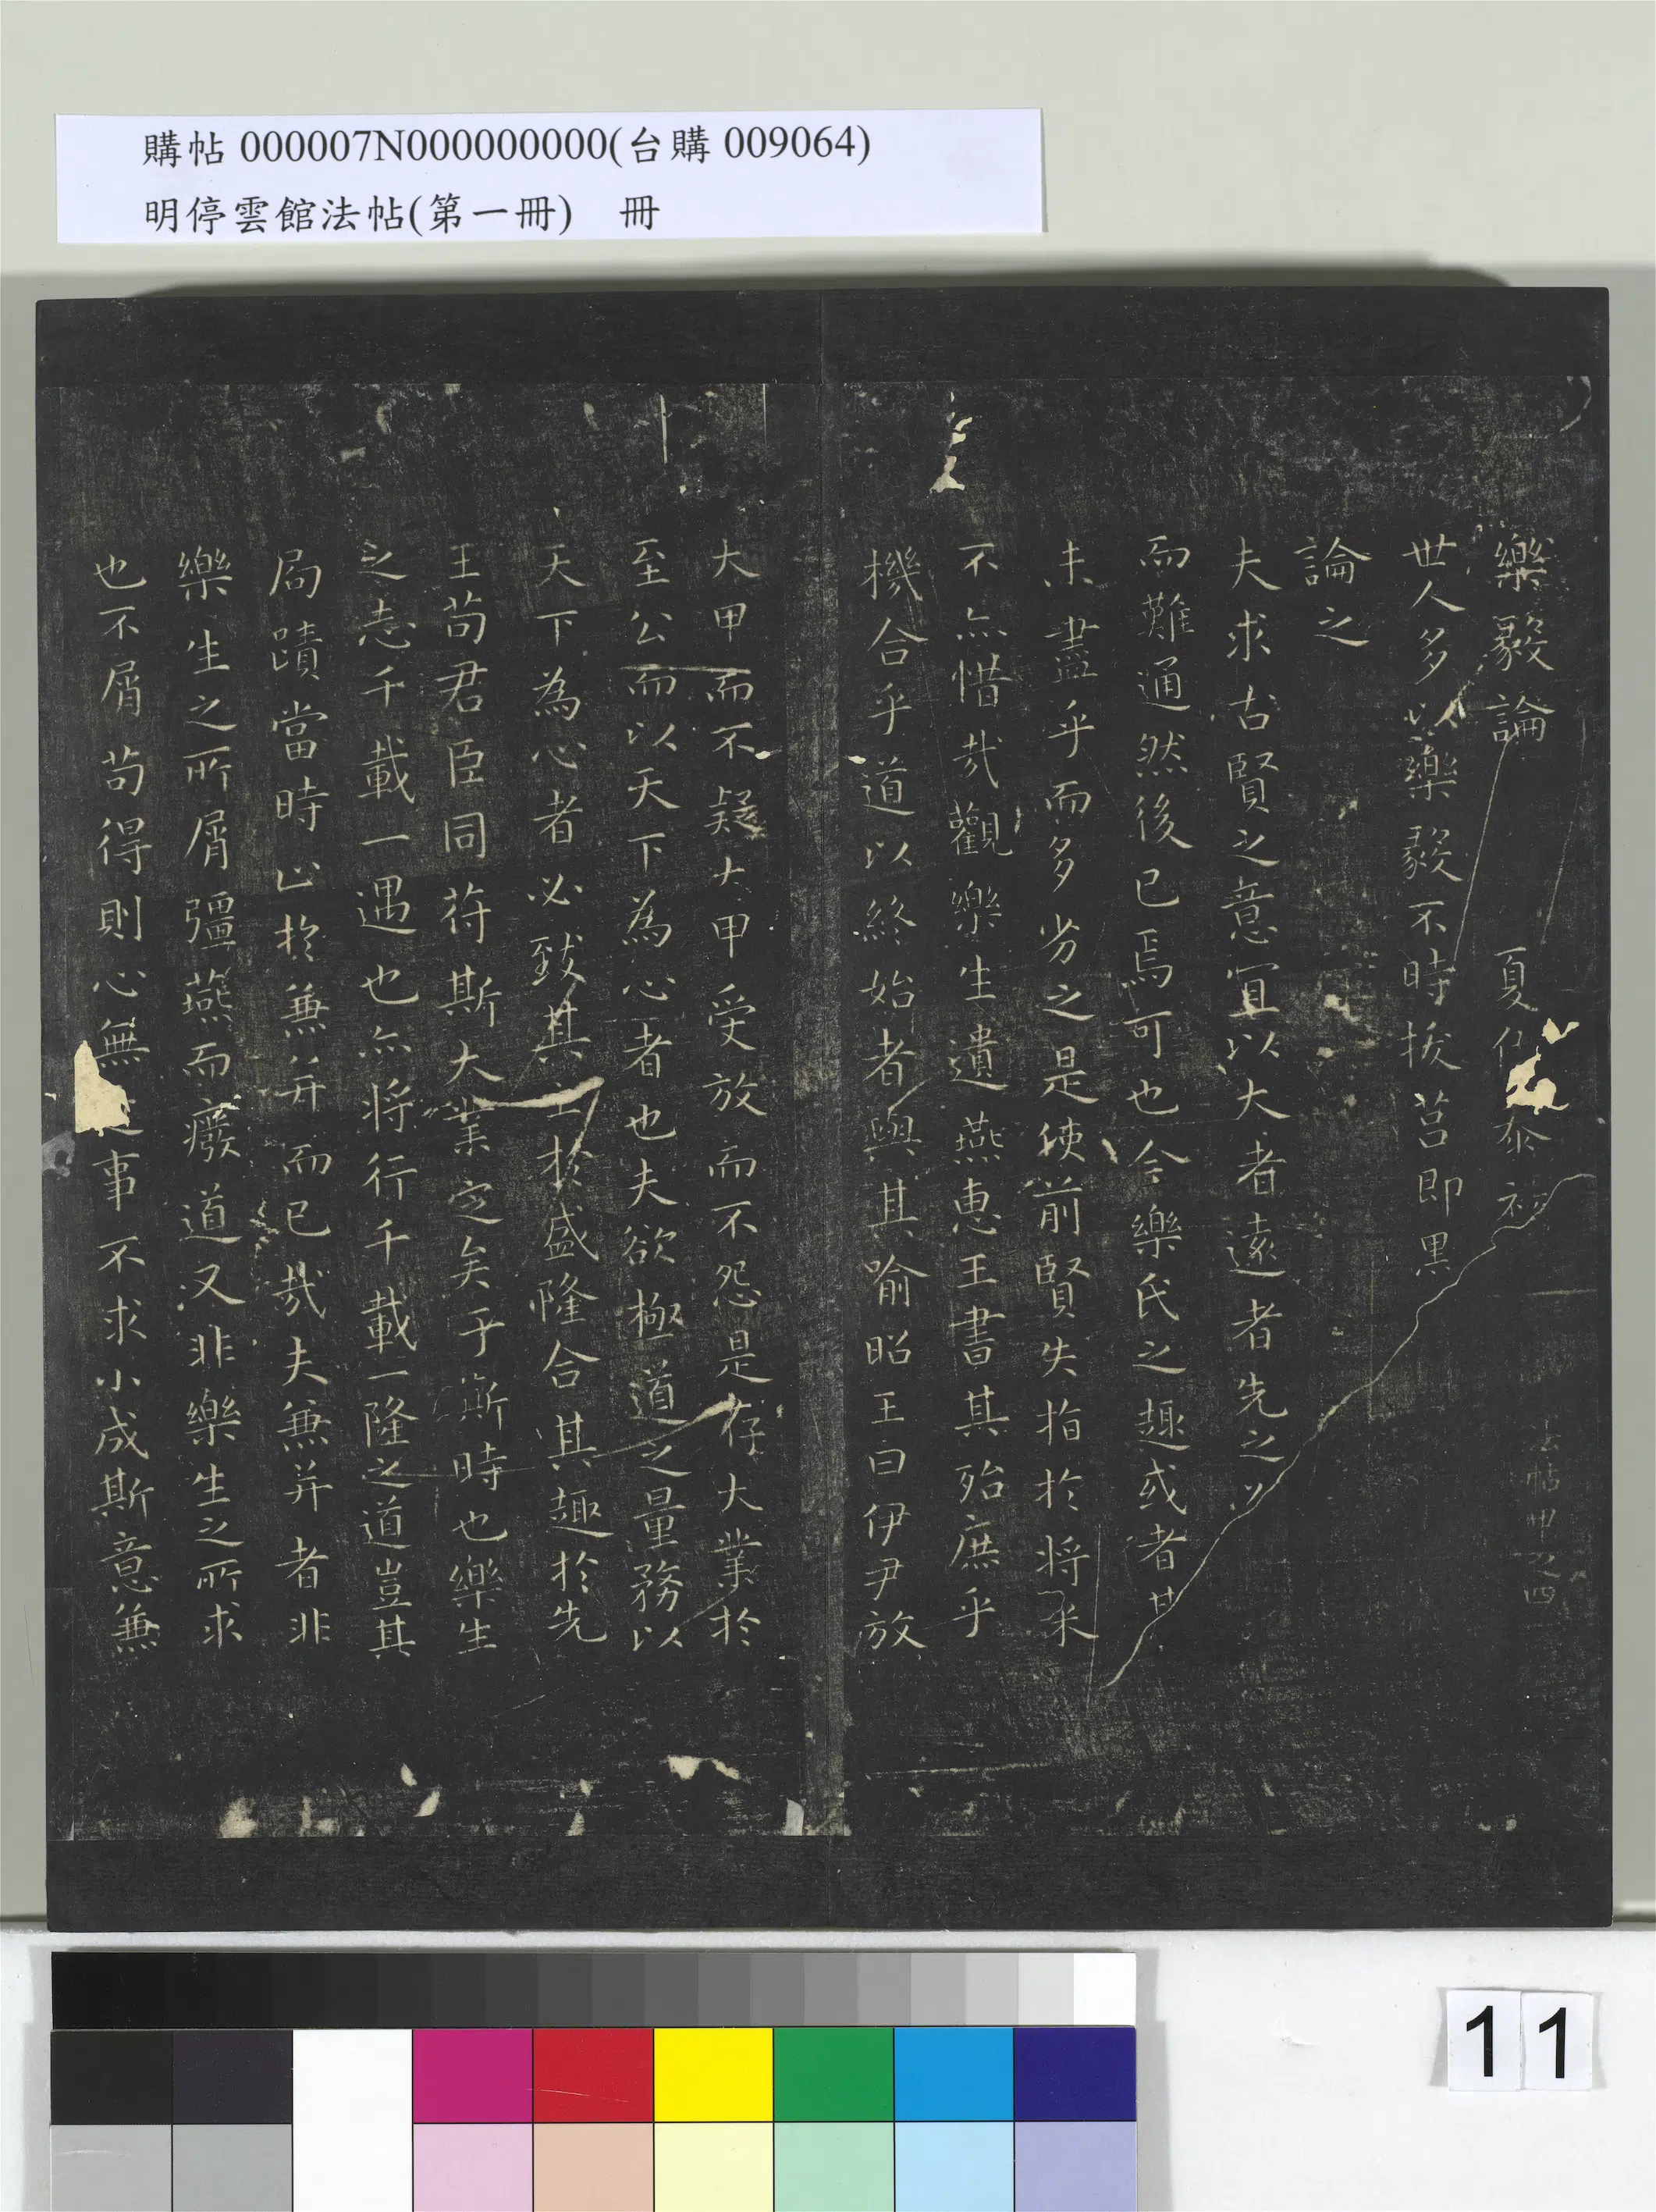 購帖 000007N000000000(台購 009064)
明停雲館法帖(第一冊)　冊
樂毅論　夏泰初
法帖甲之四
世人多以樂毅不時拔莒即墨
論之
夫求古賢之意宜以大者遠者先之必
而難通然後已焉可也今樂氏之趣或者其
未盡乎而多劣之是使前賢失指於將來
不亦惜哉觀樂生遺燕惠王書其殆庶乎
機合乎道以終始者與其喻昭王曰伊尹放
大甲而不疑大甲受放而不怨是存大業於
至公而以天下為心者也夫欲極道之量務以
天下為心者必致其主於盛隆合其趣於先
王苟君臣同符斯大業定矣于斯時也樂生
之志千載一遇也亦將行千載一隆之道豈其
局蹟當時止於兼并而已哉夫兼并者非
樂生之所屑彊燕而廢道又非樂生之所求
也不屑苟得則心無事不求小成斯意兼
11